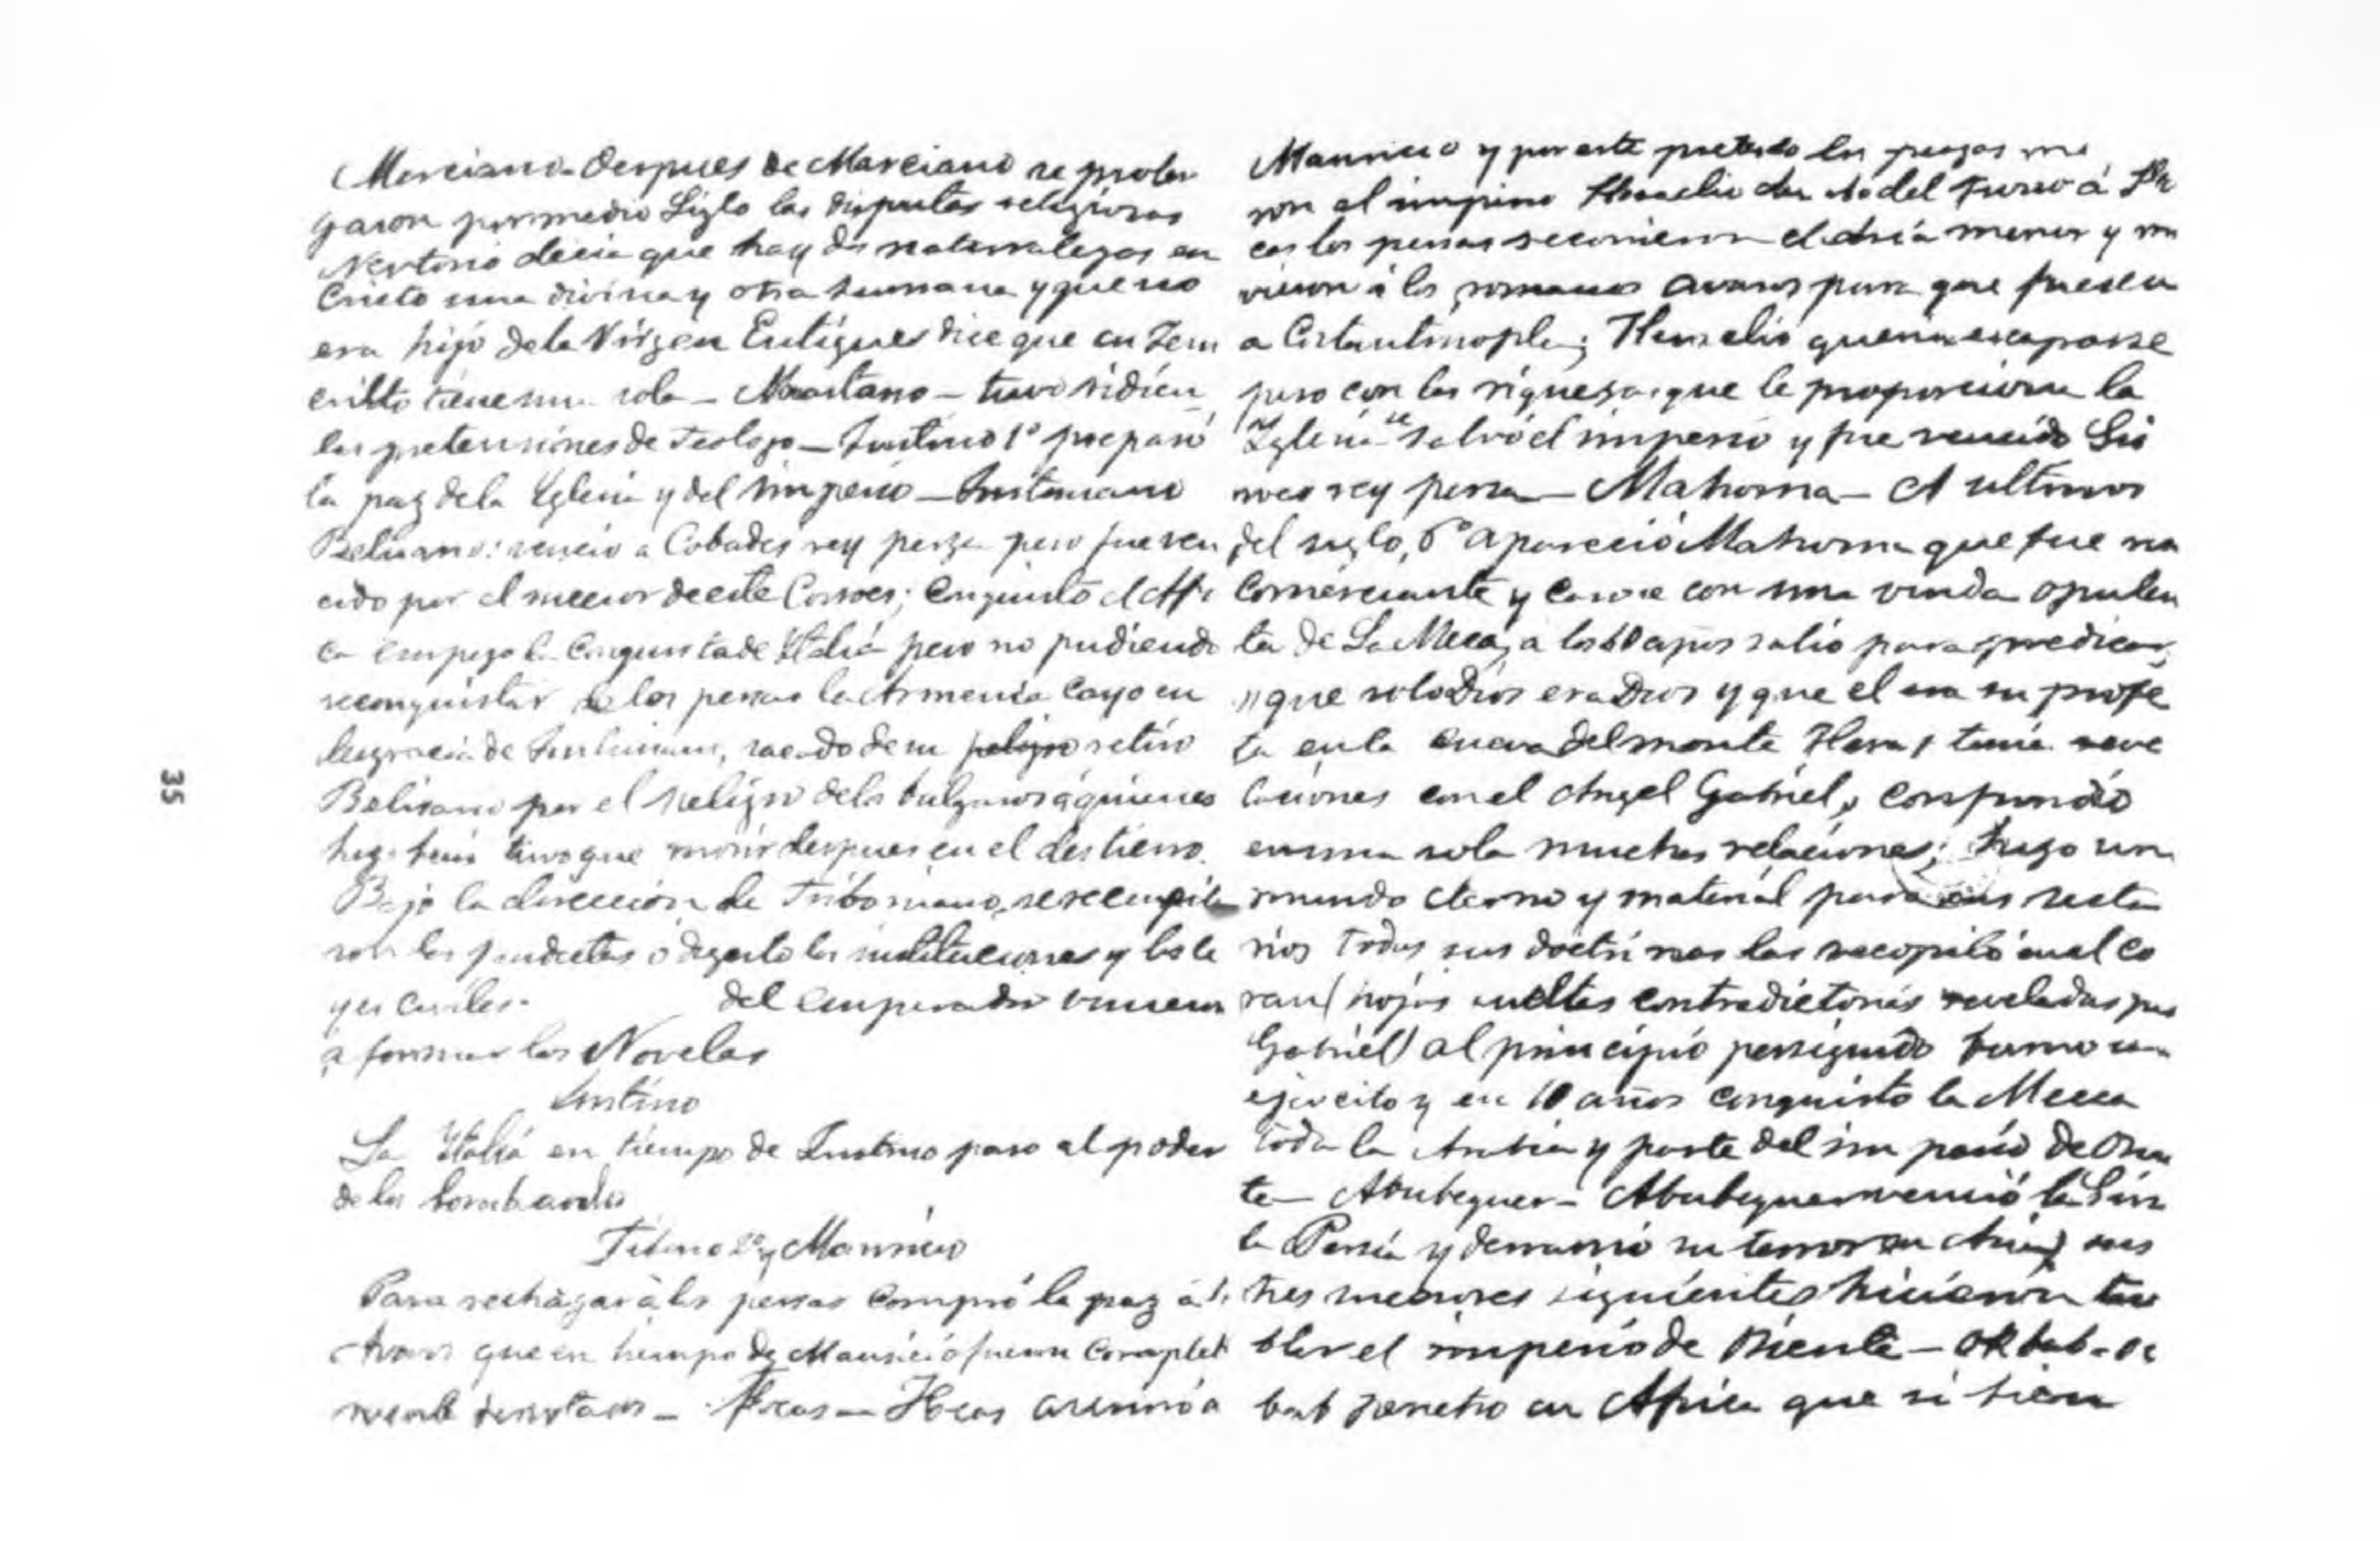 Marciano - Despues de Marciano se prolon
garon por medio Siglo las disputas religiosas
Nestorio decia que hay dos naturalezas en
Cristo una divina y otra humana y que no
era hijo de la Virgen Eutiques dice que en Jesu
cristo tiene una sola - Anastasio - tuvo ridicu
las pretensiones de Teologo - Justino 1º preparó
la paz de la Yglesia y del imperio - Justiniano
Belisario: venció a Cobades rey persa pero fue ven
cido por el sucesor de este Cosroes; Conquistó el Afri
ca empezo la Conquista de Ytalia pero no pudiendo
reconquistar de los persas la Armenia Cayo en
desgracia de Justiniano, sacado de su retiro
Belisario por el peligro de los bulgaros á quienes
hizo huir tuvo que morir despues en el destierro.
Bajo la direccion de Triboniano, se recopila
ron las pandectas o digesto las instituciones y las le
yes civiles. del emperador vinieron
a formar las Novelas
Justino
La Ytalia en tiempo de Justino paso al poder
de los lombardos
Tiberio 2º y Mauricio
Para rechazar á los persas Compró la paz á l
Avaros que en tiempo de Mauricio fueron Complet
mente derrotados - Focas - Focas asesinó a
Mauricio y por este pretexto los persas
ron el imperio Heraclio
cas los persas recorrieron el Asia menor y
vieron á los avaros para que fuesen
a Costantinopla; Heraclio queria escaparse
pero con las riquezas que le proporciona la
Yglesia se salvó el imperio y fue vencido Sis
roes rey persa - Mahoma - A ultimos
del siglo 6º apareció Mahoma que fue un
Comerciante y Casose con una viuda opulen
ta de La Meca, a los 40 años salio para predicar,
"que solo Dios era Dios y que el era su profe
ta en la cueva del monte Hera, tenia reve
laciones con el Angel Gabriel, confundió
en una sola muchas relaciones; hizo un
mundo eterno y material para sus secta
rios Todas sus doctrinas las recopiló en el Co
ran (hojas sueltas contradictorias reveladas por
Gabriel) al principio perseguido formo un
ejercito y en 10 años conquisto la Meca
toda la Arabia y parte del imperio de Orien
te - Abubequer - Abubequer venció la Siria
la Persia y derramó su terror en Asia, sus
tres sucesores siguientes hicieron tem
blar el imperio de Oriente -
penetro en Africa que si bien